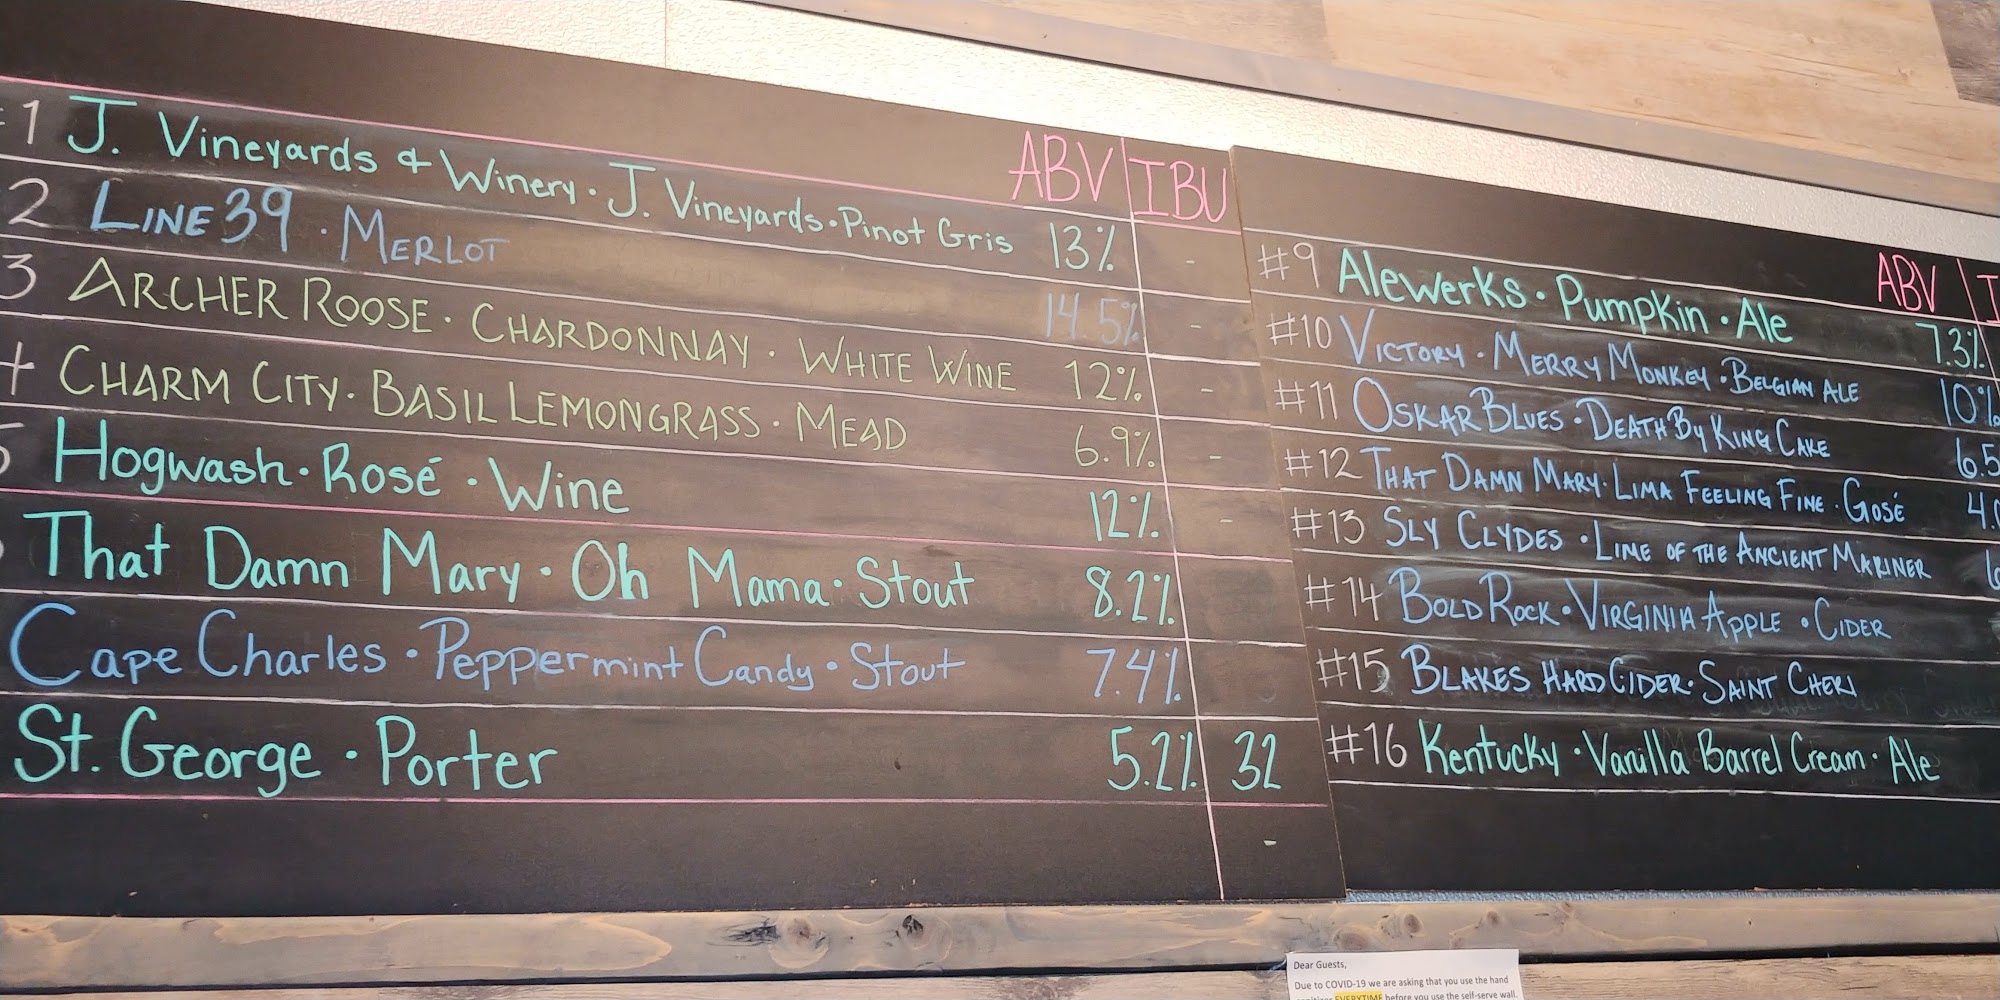 ABV IBU
1 J. Vineyards & Winery · J. Vineyards · Pinot Gris 13% -
2 LINE 39 · MERLOT 14.5% -
3 ARCHER ROOSE · CHARDONNAY · WHITE WINE 12% -
4 CHARM CITY · BASIL LEMONGRASS · MEAD 6.9% -
5 Hogwash · Rosé · Wine 12% -
That Damn Mary · Oh Mama · Stout 8.2%
Cape Charles · Peppermint Candy · Stout 7.4%
St. George · Porter 5.2% 32
-
ABV I
#9 Alewerks · Pumpkin · Ale 7.3%
#10 VICTORY · MERRY MONKEY · BELGIAN ALE 10%
#11 OSKAR BLUES · DEATH BY KING CAKE 6.5
#12 THAT DAMN MARY · LIMA FEELING FINE · GOSÉ 4.0
#13 SLY CLYDES · LIME OF THE ANCIENT MARINER 6
#14 BOLD ROCK · VIRGINIA APPLE · CIDER
#15 BLAKES HARD CIDER · SAINT CHERI
#16 Kentucky · Vanilla Barrel Cream · Ale
Dear Guests,
Due to COVID-19 we are asking that you use the hand
sanitizer EVERYTIME before you use the self-serve wall.